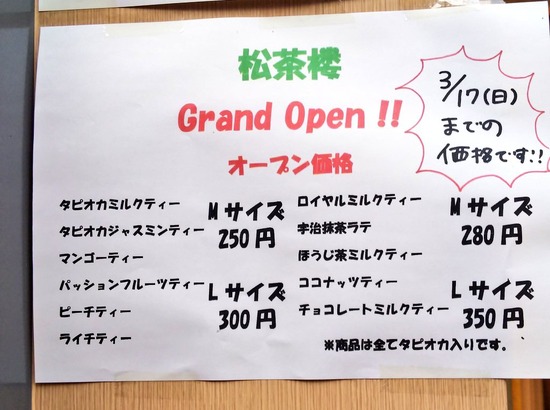 松茶楼
Grand Open !!
オープン価格
3/17(日)
までの
価格です!!
タピオカミルクティー
タピオカジャスミンティー
マンゴーティー
パッションフルーツティー
ピーチティー
ライチティー
Mサイズ
250円
Lサイズ
300円
ロイヤルミルクティー
宇治抹茶ラテ
ほうじ茶ミルクティー
ココナッツティー
チョコレートミルクティー
Mサイズ
280円
Lサイズ
350円
※商品は全てタピオカ入りです。